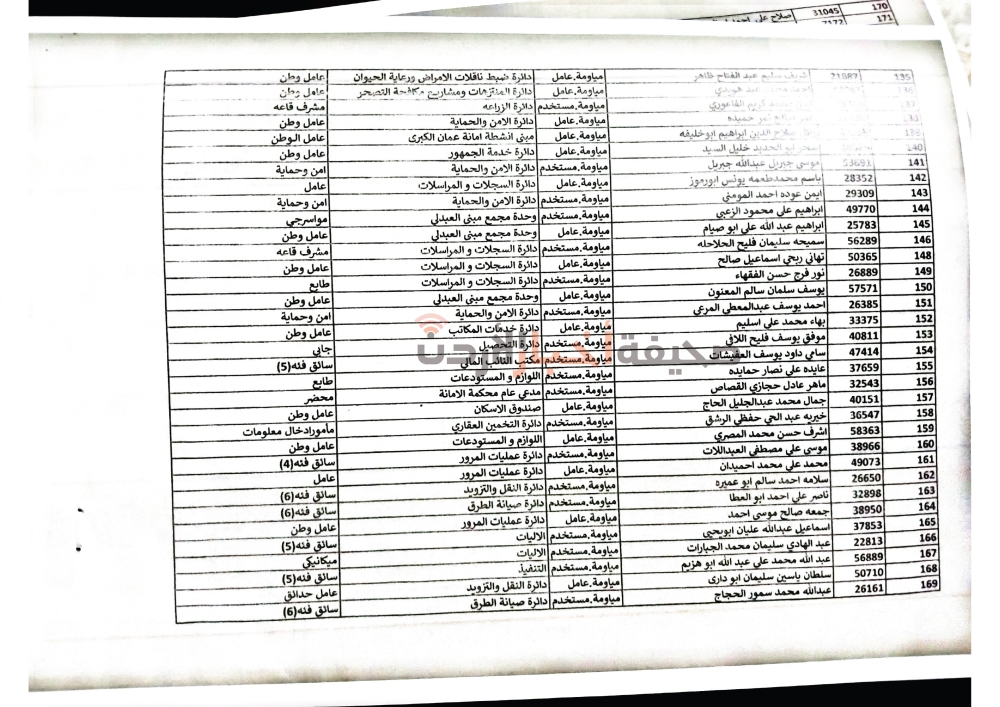 170 31045 صلاح علي احمد
171
135 21887 شريف سليم عبد الفتاح ظاهر مياومة.عامل دائرة ضبط ناقلات الامراض ورعاية الحيوان عامل وطن
136 مياومة.عامل دائرة المنتزهات ومشاريع مكافحة التصحر عامل وطن
137 مياومة.مستخدم دائرة الزراعه مشرف قاعه
مياومة.عامل دائرة الامن والحماية عامل وطن
139 صلاح الدين ابراهيم ابوخليفه مياومة.عامل مبنى انشطة امانة عمان الكبرى عامل الوطن
140 ابو الحديد خليل السيد مياومة.عامل دائرة خدمة الجمهور عامل وطن
141 53691 موسى جبريل عبدالله جبريل مياومة.مستخدم دائرة الامن والحماية امن وحماية
142 28352 باسم محمدطعمه يونس ابورموز مياومة.عامل دائرة السجلات و المراسلات عامل
143 29309 ايمن عوده احمد المومني مياومة.مستخدم دائرة الامن والحماية امن وحماية
144 49770 ابراهيم علي محمود الزعبي مياومة.مستخدم وحدة مجمع مبنى العبدلي مواسرجي
145 25783 ابراهيم عبد الله علي ابو صيام مياومة.عامل وحدة مجمع مبنى العبدلي عامل وطن
146 56289 سميحه سليمان فليح الحلاحله مياومة.مستخدم دائرة السجلات و المراسلات مشرف قاعه
148 50365 تهاني ربحي اسماعيل صالح مياومة.عامل دائرة السجلات و المراسلات عامل وطن
149 26889 نور فرج حسن الفقهاء مياومة.مستخدم دائرة السجلات و المراسلات طابع
150 57571 يوسف سلمان سالم المعنون مياومة.عامل وحدة مجمع مبنى العبدلي عامل وطن
151 26385 احمد يوسف عبدالمعطي المرعي مياومة.مستخدم دائرة الامن والحماية امن وحماية
152 33375 بهاء محمد علي اسليم مياومة.عامل دائرة خدمات المكاتب عامل وطن
153 40811 موفق يوسف فليح اللافي مياومة.مستخدم دائرة التحصيل جابي
154 47414 سامي داود يوسف العفيشات مياومة.مستخدم مكتب النائب المالي سائق فئه(5)
155 37659 عايده علي نصار حمايده مياومة.مستخدم اللوازم و المستودعات طابع
156 32543 ماهر عادل حجازي القصاص مياومة.مستخدم مدعي عام محكمة الامانة محضر
157 40151 جمال محمد عبدالجليل الحاج مياومة.عامل صندوق الاسكان عامل وطن
158 36547 خيريه عبد الحي حفظي الرشق مياومة.مستخدم دائرة التخمين العقاري مأمورادخال معلومات
159 58363 اشرف حسن محمد المصري مياومة.عامل اللوازم و المستودعات عامل وطن
160 38966 موسى علي مصطفى العبداللات مياومة.مستخدم دائرة عمليات المرور سائق فئه(4)
161 49073 محمد علي محمد احميدان مياومة.عامل دائرة عمليات المرور عامل
162 26650 سلامه احمد سالم ابو عميره مياومة.مستخدم دائرة النقل والتزويد سائق فئه(6)
163 32898 ناصر علي احمد ابو العطا مياومة.مستخدم دائرة صيانة الطرق سائق فئه(6)
164 38950 جمعه صالح موسى احمد مياومة.عامل دائرة عمليات المرور عامل وطن
165 37853 اسماعيل عبدالله عليان ابويحيى مياومة.مستخدم الاليات سائق فئه(5)
166 22813 عبد الهادي سليمان محمد الجبارات مياومة.مستخدم الاليات ميكانيكي
167 56889 عبد الله محمد علي عبد الله ابو هزيم مياومة.مستخدم التنفيذ سائق فئه(5)
168 50710 سلطان ياسين سليمان ابو داري مياومة.عامل دائرة النقل والتزويد عامل حدائق
169 26161 عبدالله محمد سمور الحجاج مياومة.مستخدم دائرة صيانة الطرق سائق فئه(6)
صحيفة أخبار الأردن